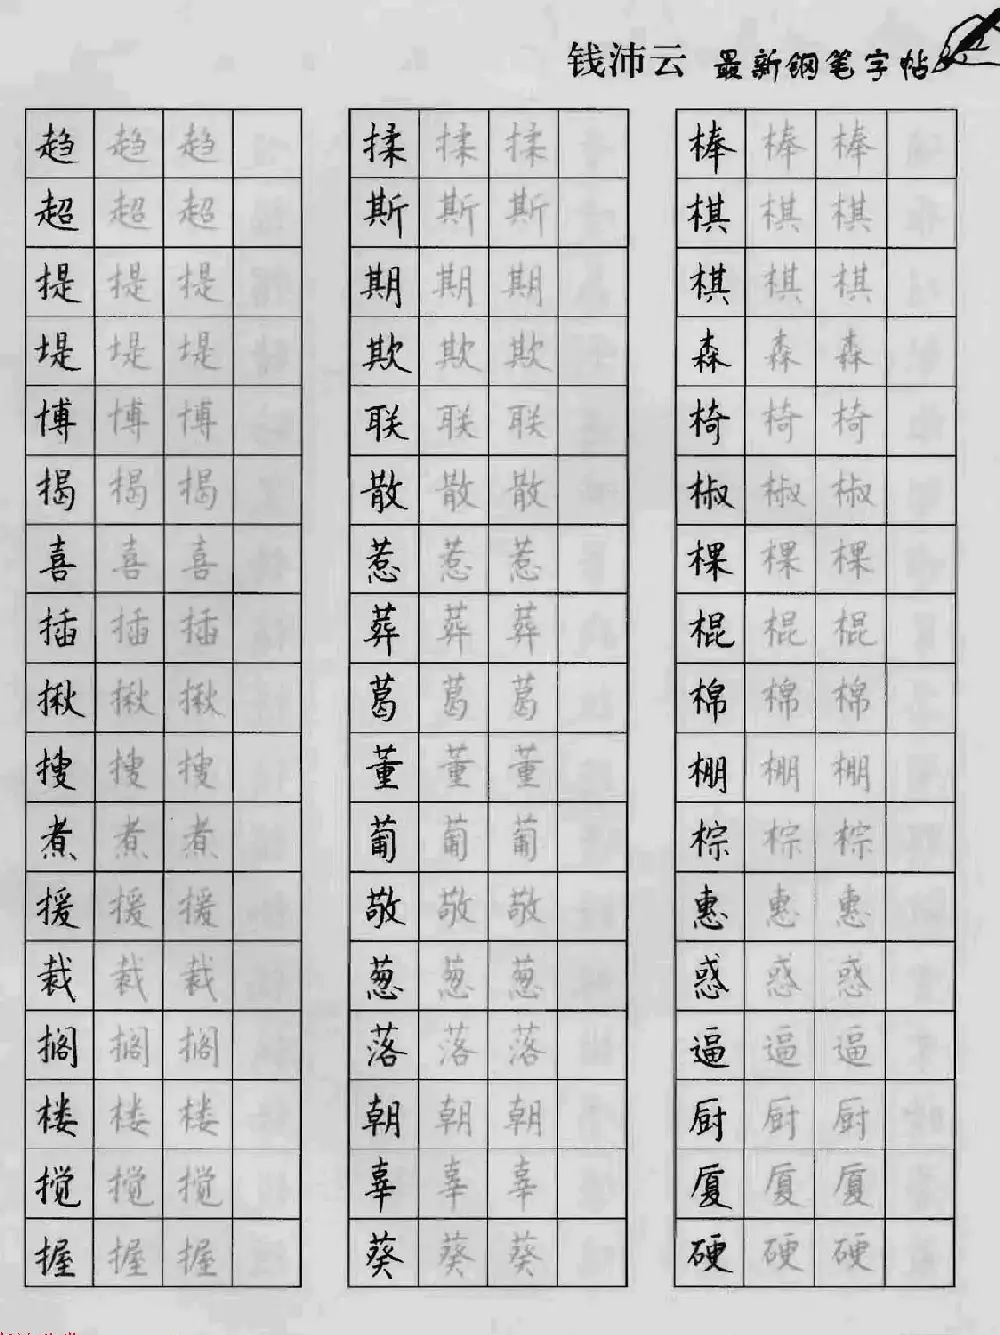 钱沛云 最新钢笔字帖
趋 趋 趋 揉 揉 揉 棒 棒 棒
超 超 超 斯 斯 斯 棋 棋 棋
提 提 提 期 期 期 棋 棋 棋
堤 堤 堤 欺 欺 欺 森 森 森
博 博 博 联 联 联 椅 椅 椅
揭 揭 揭 散 散 散 椒 椒 椒
喜 喜 喜 惹 惹 惹 棵 棵 棵
插 插 插 葬 葬 葬 棍 棍 棍
揪 揪 揪 葛 葛 葛 棉 棉 棉
搜 搜 搜 董 董 董 棚 棚 棚
煮 煮 煮 葡 葡 葡 棕 棕 棕
援 援 援 敬 敬 敬 惠 惠 惠
裁 裁 裁 葱 葱 葱 惑 惑 惑
搁 搁 搁 落 落 落 逼 逼 逼
楼 楼 楼 朝 朝 朝 厨 厨 厨
搅 搅 搅 辜 辜 辜 厦 厦 厦
握 握 握 葵 葵 葵 硬 硬 硬